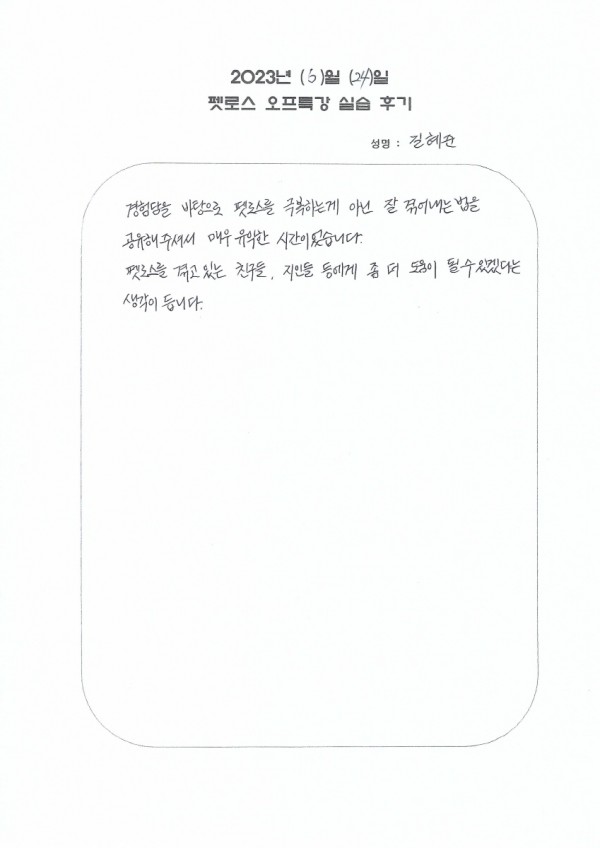 2023년 (6)월 (24)일
펫로스 오프특강 실습 후기
성명 : 길혜란
경험담을 바탕으로 펫로스를 극복하는게 아닌 잘 겪어내는 법을
공유해 주셔서 매우 유익한 시간이었습니다.
펫로스를 겪고 있는 친구들, 지인들 등에게 좀 더 도움이 될 수 있겠다는
생각이 듭니다.